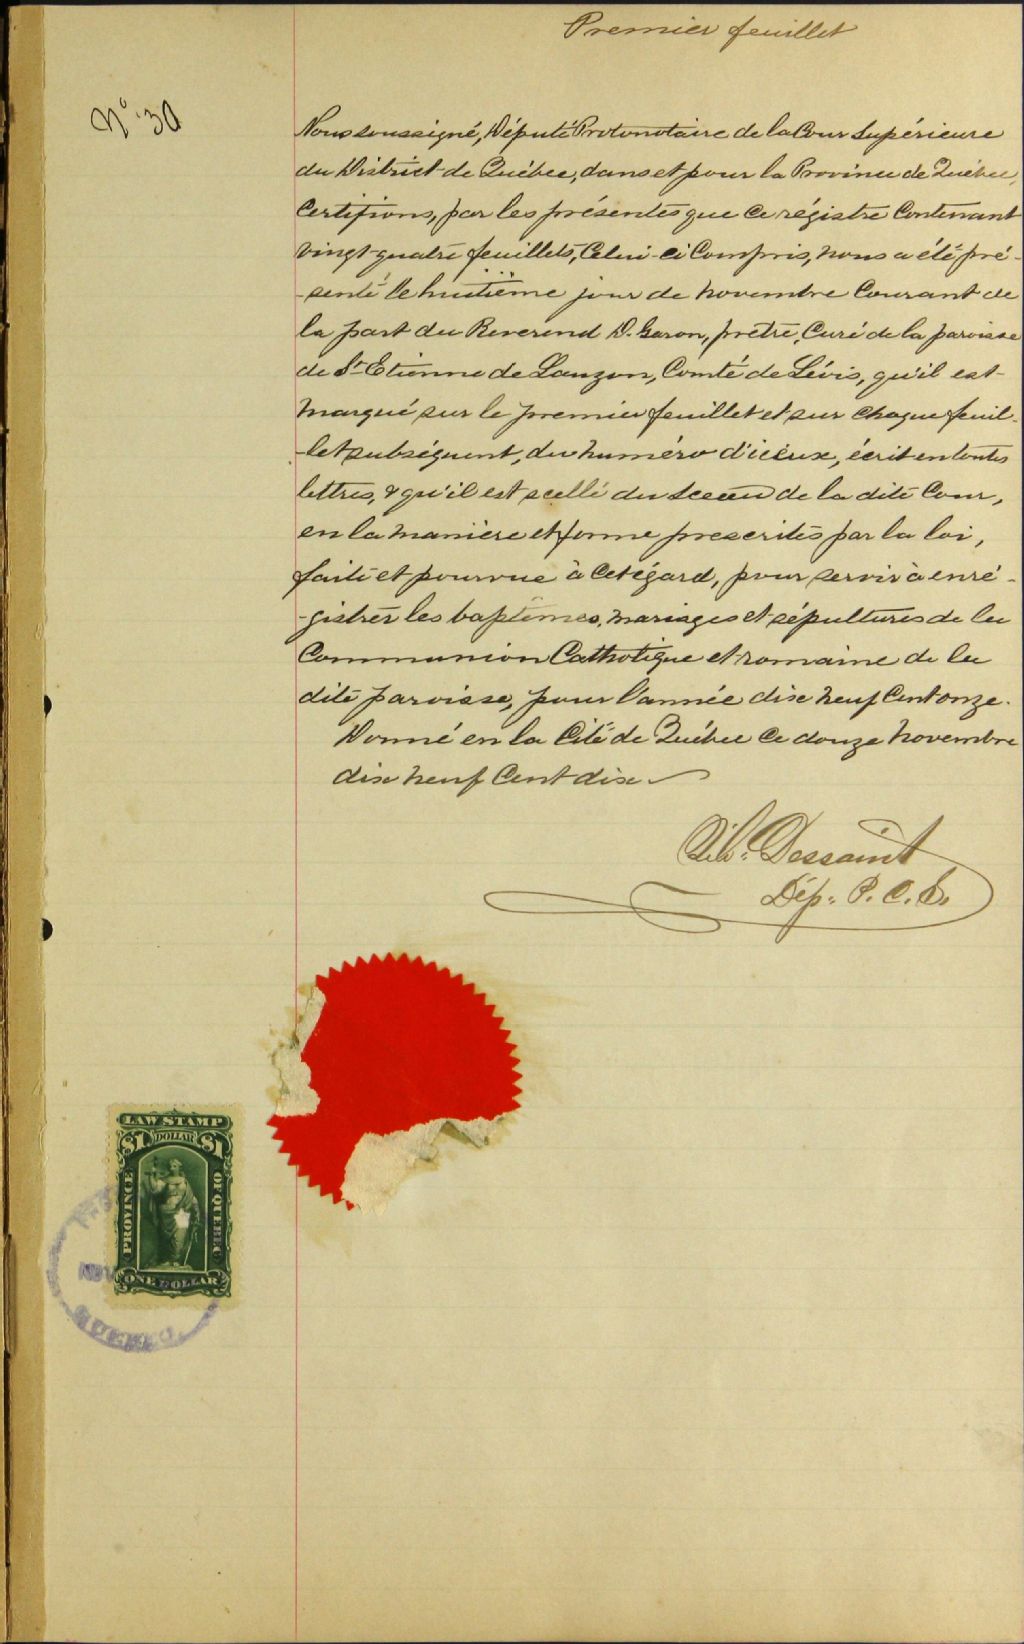 Premier feuillet
No. 30
Nous soussigné, Député Protonotaire de la Cour Supérieure
du District de Québec, dans et pour la Province de Québec,
Certifions, par les présentes que ce régistre Contenant
vingt-quatre feuillets, Celui-ci Compris, nous a été pré-
-senté le huitième jour de novembre Courant de
la part du Reverend D. Garon, prêtre, Curé de la paroisse
de St Etienne de Lauzon, Comté de Lévis, qu'il est
marqué sur le premier feuillet et sur chaque feuil-
-let subséquent, du numéro d'iceux, écrit en toutes
lettres, & qu'il est scellé du Sceau de la dite Cour,
en la manière et forme prescrites par la loi,
faite et pourvue à cet égard, pour servir à enré-
-gistrer les baptêmes, mariages et sépultures de la
Communion Catholique et romaine de la
dite paroisse, pour l'année dix neuf Cent onze.
Donné en la Cité de Québec ce douze novembre
dix neuf Cent dix
Dessaint
Dép. P. C. S.
LAW STAMP
$1 DOLLAR $1
PROVINCE OF QUEBEC
ONE DOLLAR
NOV
QUEBEC